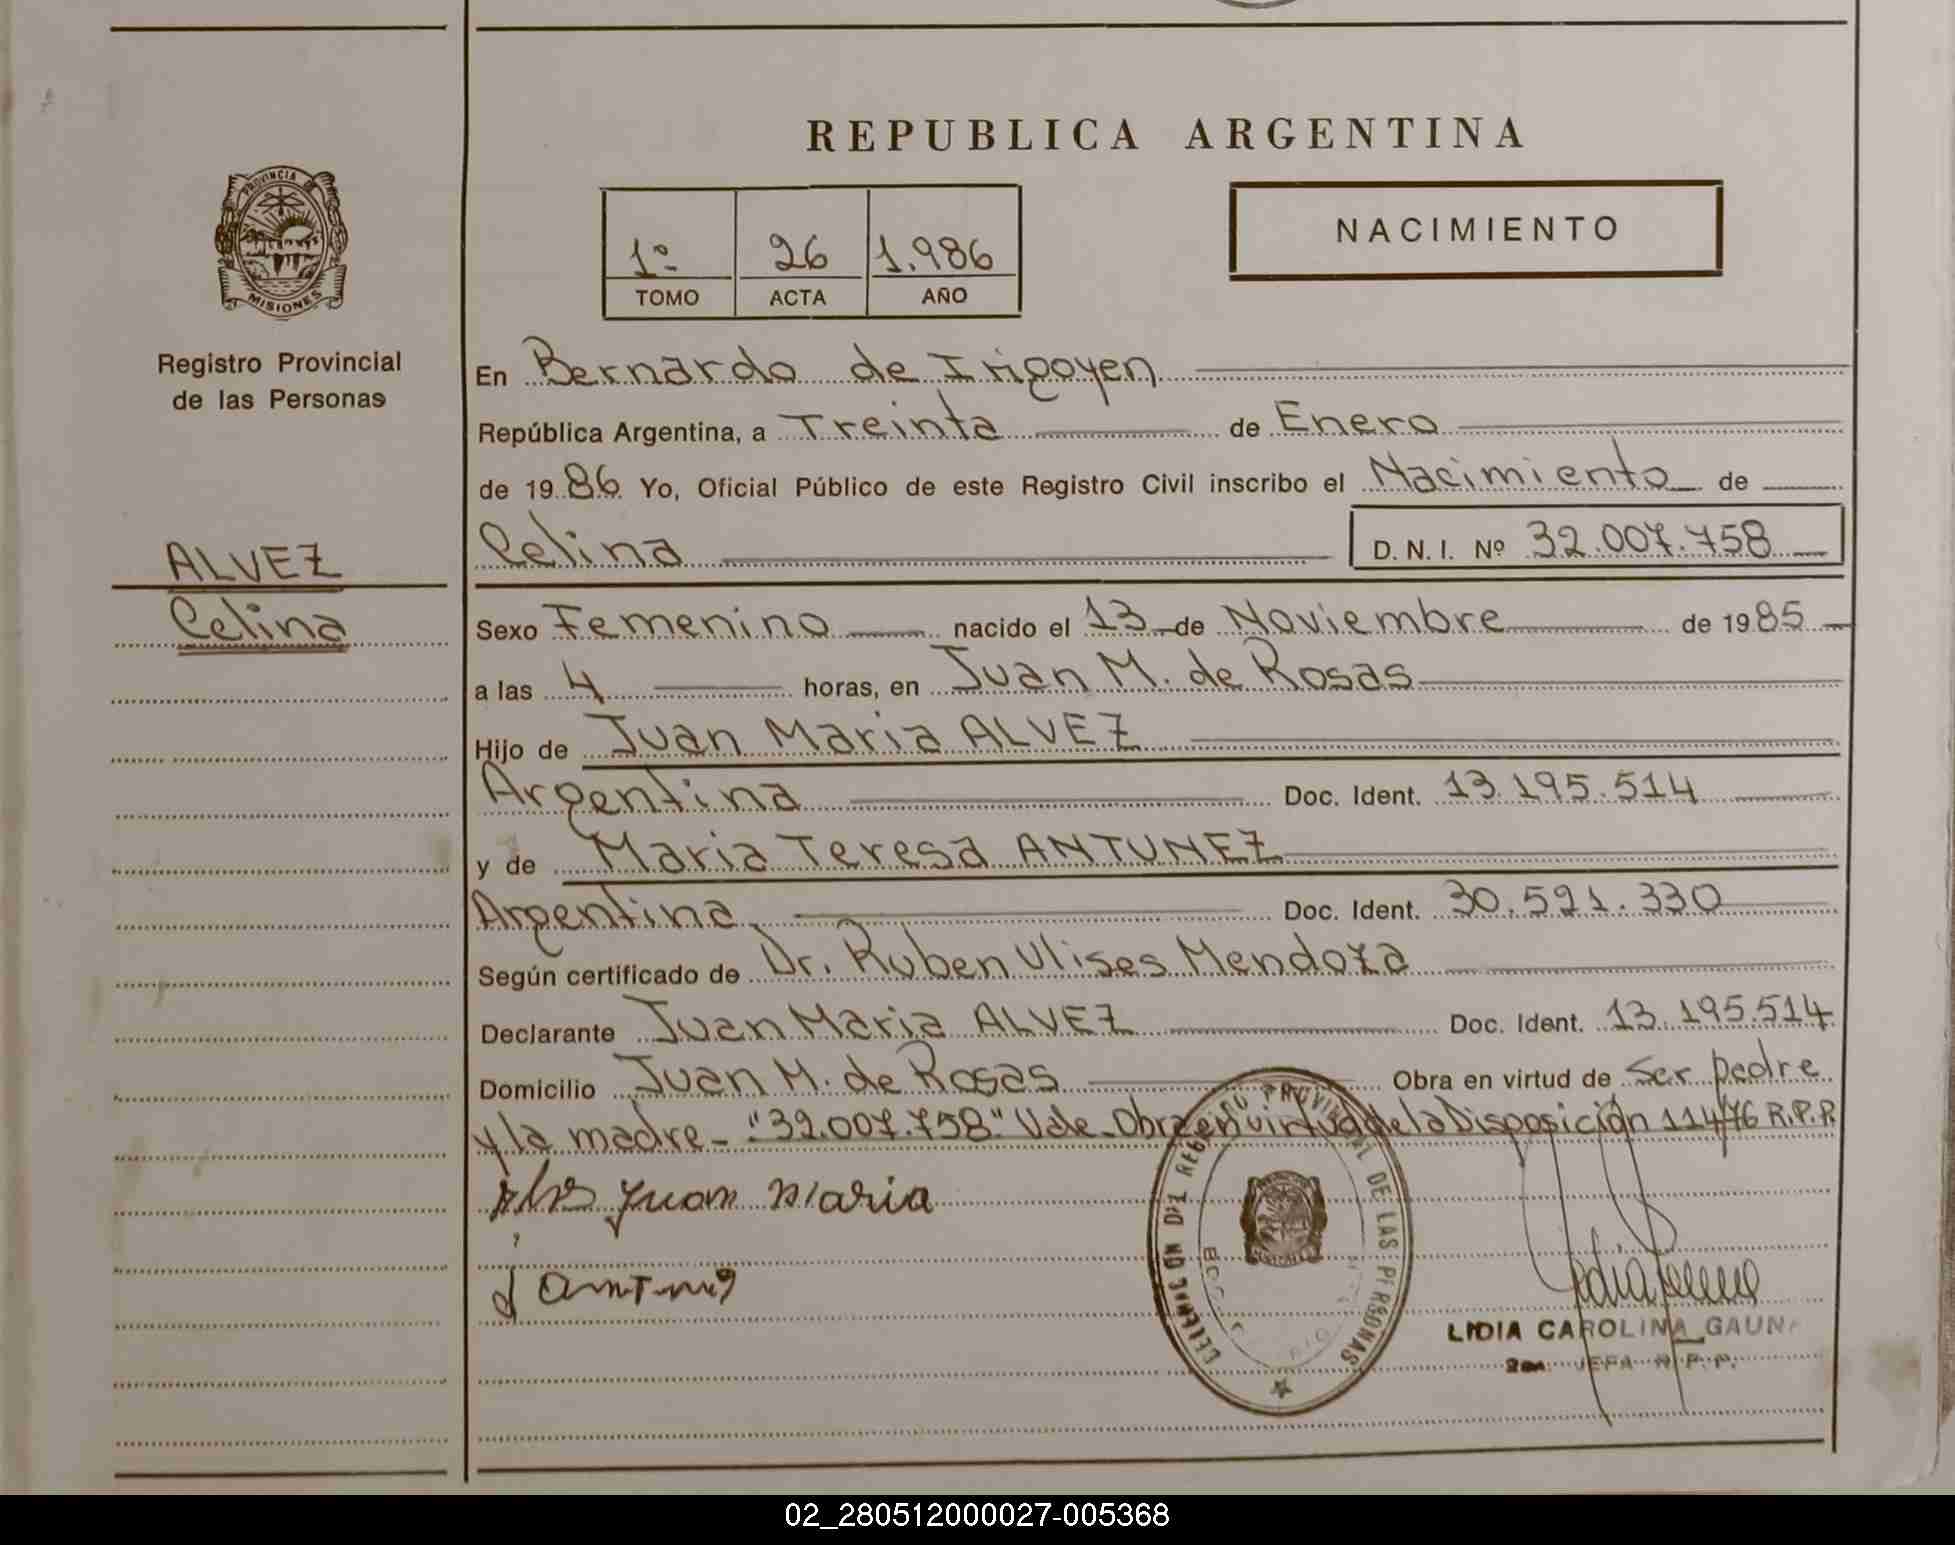 REPUBLICA ARGENTINA
PROVINCIA DE
MISIONES
Registro Provincial
de las Personas
1º 26 1.986
TOMO ACTA AÑO
NACIMIENTO
En Bernardo de Irigoyen
República Argentina, a Treinta de Enero
de 1986 Yo, Oficial Público de este Registro Civil inscribo el Nacimiento de
Celina D. N. I. Nº 32.007.758
ALVEZ
Celina
Sexo Femenino nacido el 13 de Noviembre de 1985
a las 4 horas, en Juan M. de Rosas
Hijo de Juan Maria ALVEZ
Argentina Doc. Ident. 13.195.514
y de Maria Teresa ANTUNEZ
Argentina Doc. Ident. 30.591.330
Según certificado de Dr. Ruben Ulises Mendoza
Declarante Juan Maria ALVEZ Doc. Ident. 13.195.514
Domicilio Juan M. de Rosas Obra en virtud de ser padre
y la madre - "32.007.758" Vale. Obra en virtud de la Disposición 114/76 R.P.P.
Juan Maria
DELEGACION DEL REGISTRO PROVINCIAL DE LAS PERSONAS
LIDIA CAROLINA GAUNA
JEFA R.P.P.
02_280512000027-005368